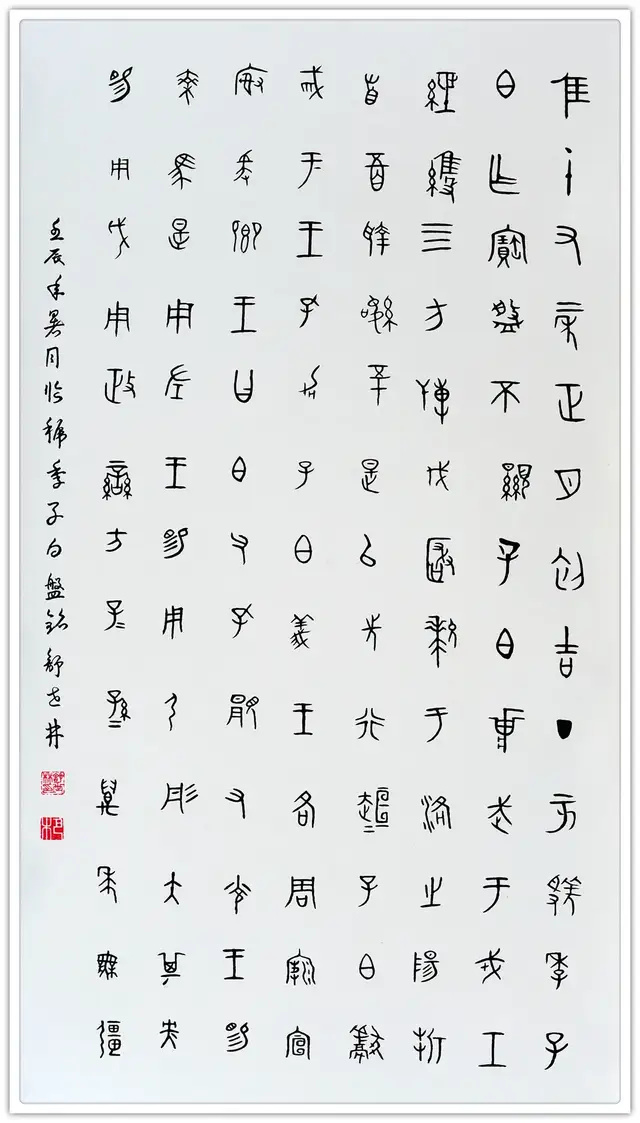 隹十又二年正月初吉丁亥虢季子
白乍寶盤不顯子白壯武于戎工
經維四方搏伐玁狁于洛之陽折
首五百執訊五十是以先行桓桓子白獻
馘于王孔加子白義王各周廟宣
榭爰鄉王曰白父孔顯又光王賜
乘馬是用左王賜用弓彤矢其央
賜用戉用政蠻方子子孫孫萬年無疆
壬辰年暑月临虢季子白盤銘舒